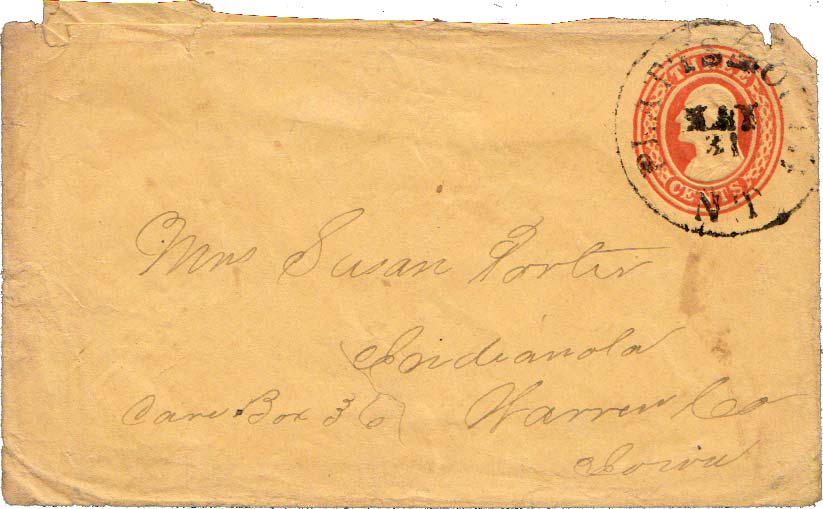 PLATTSMOUTH
THREE
MAY
31
CENTS
N.T
Mrs Susan Porter
Indianola
Care Box 36 Warren Co
Iowa